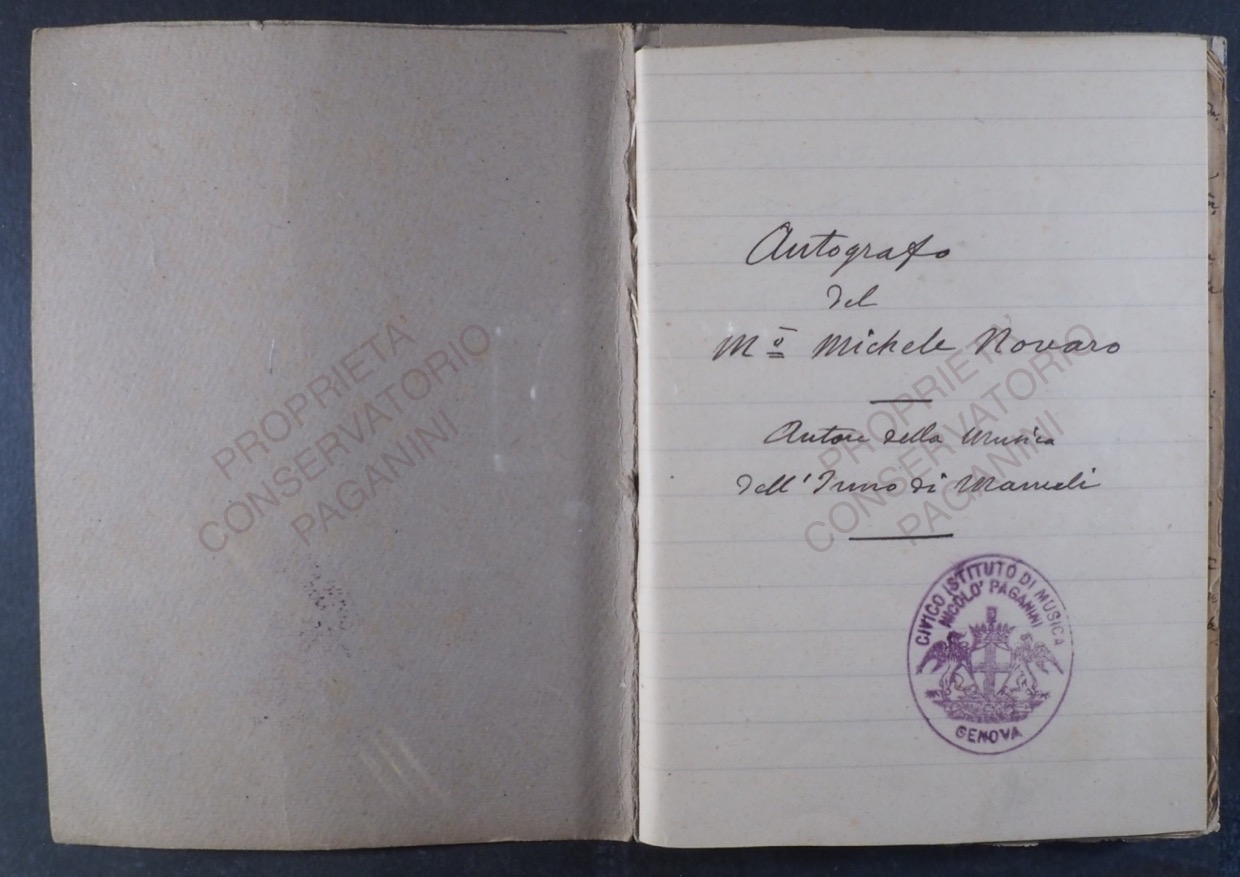 PROPRIETA'
CONSERVATORIO
PAGANINI
Autografo
del
Mº Michele Novaro
Autore della Musica
dell'Inno di Mameli
PROPRIETA'
CONSERVATORIO
PAGANINI
CIVICO ISTITUTO DI MUSICA
NICOLO' PAGANINI
GENOVA